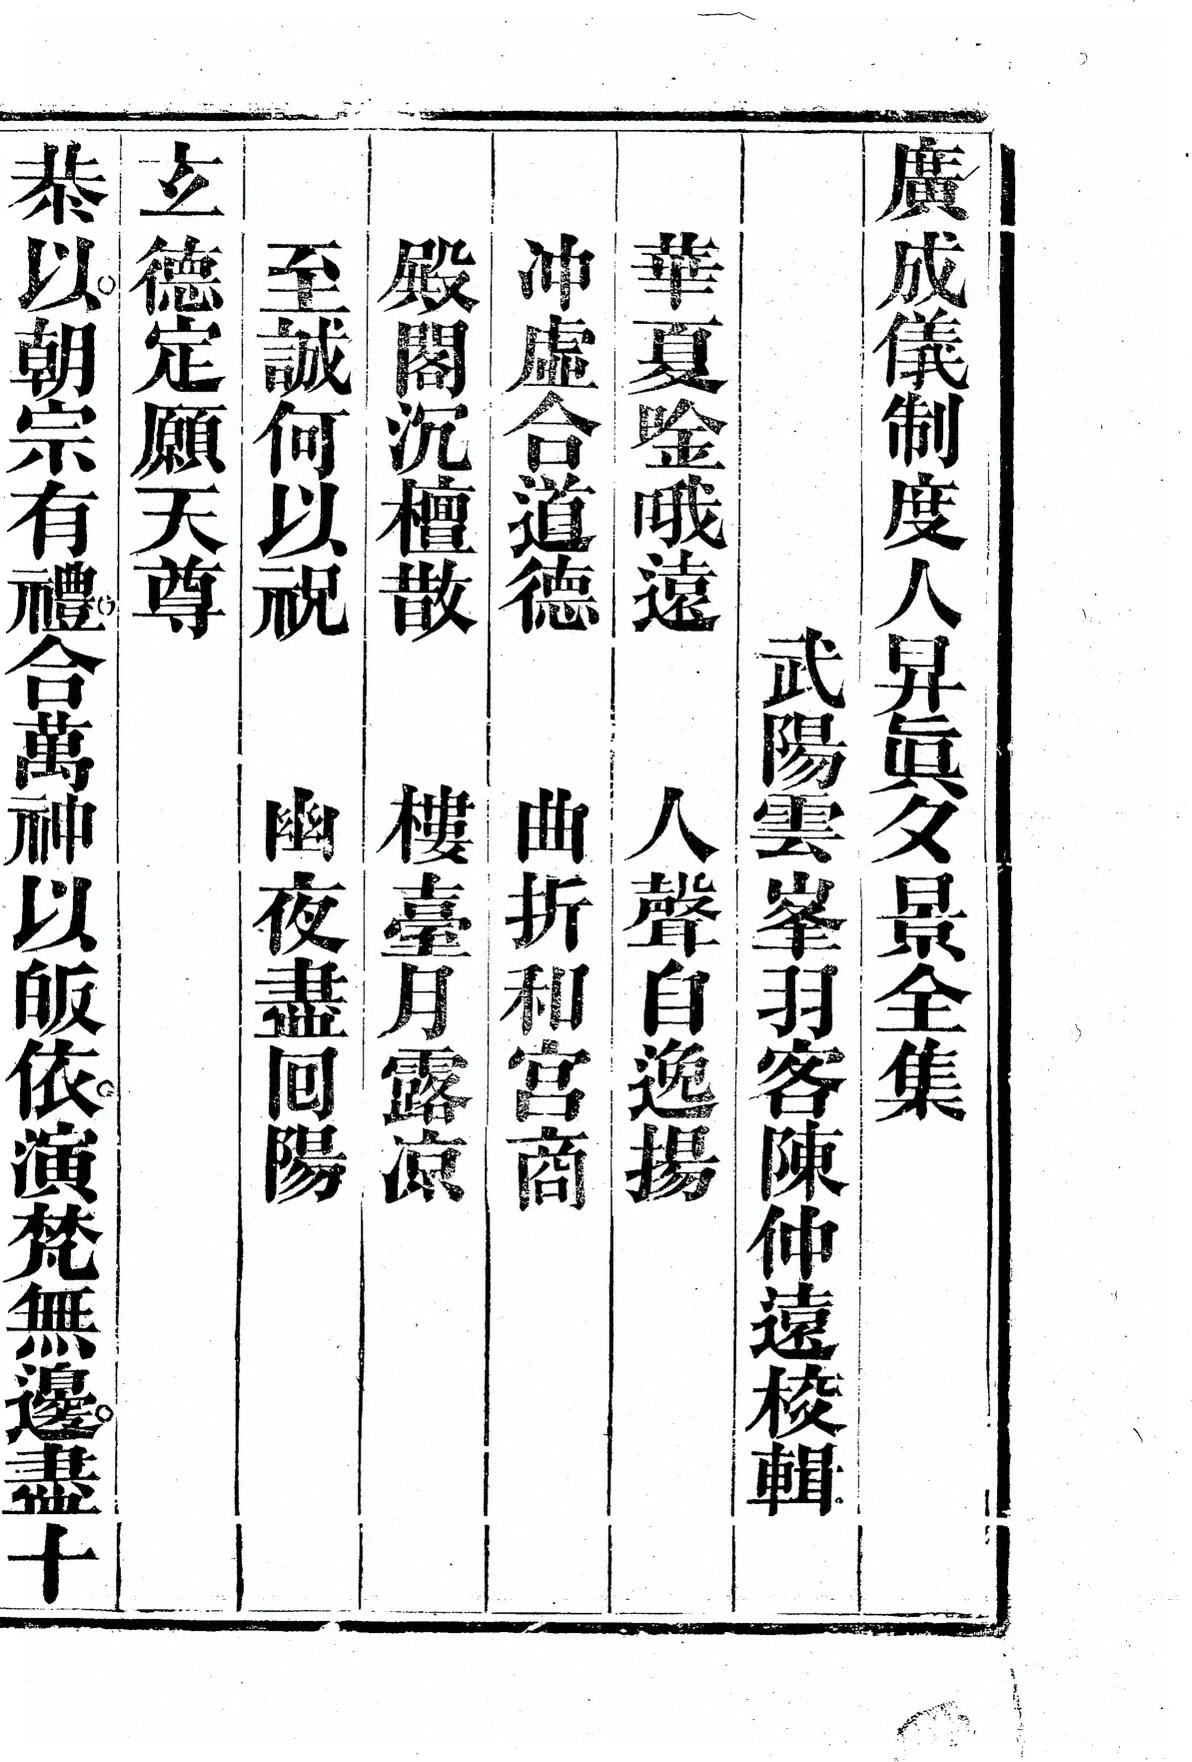 廣成儀制度人昇眞夕景全集
武陽雲峯羽客陳仲遠校輯
華夏唫哦遠　人聲自逸揚
冲虛合道德　曲折和宮商
殿閣沉檀散　樓臺月露凉
至誠何以祝　幽夜盡回陽
玄德定願天尊
恭以。朝宗有禮。合萬神以皈依。演梵無邊。盡十